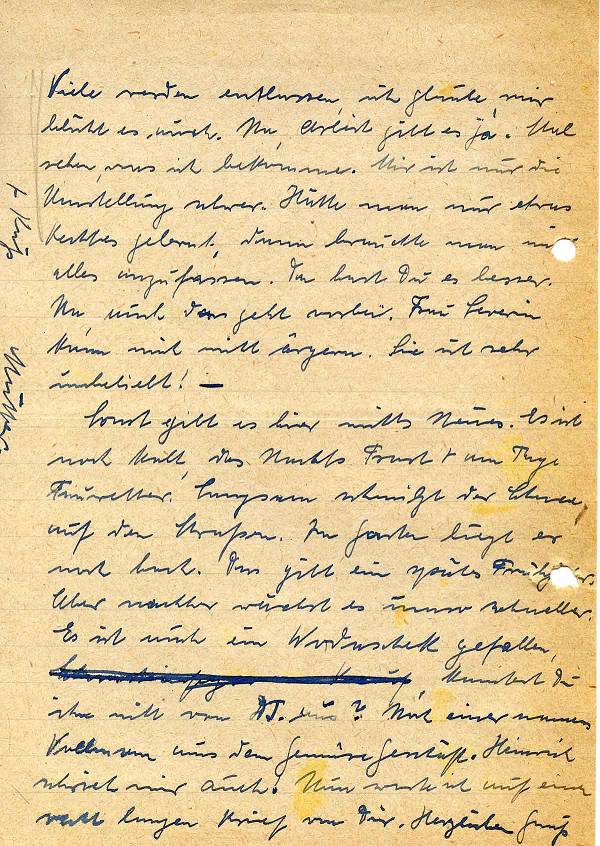 Viele werden entlassen, ich glaube, mir
blüht es auch. Na, Arbeit gibt es ja. Mal
sehen, was ich bekomme. Mir ist nur die
Umstellung schwer. Hätte man nur etwas
Rechtes gelernt, dann brauchte man nicht
alles anzufassen. Da hast Du es besser.
Na auch das geht vorbei. Frau Severin
kann mich nicht ärgern. Sie ist sehr
unbeliebt! —
Sonst gibt es hier nichts Neues. Es ist
noch kalt, des Nachts Frost + am Tage
Tauwetter. Langsam schmilzt der Schnee
auf den Straßen. Im Garten liegt er
noch hoch. Das gibt ein spätes Frühjahr.
Aber nachher wächst es umso schneller.
Es ist auch ein gefallen,
kanntest Du
ihn nicht von aus? Mit einer namens
aus dem Gemüsegeschäft. Heinrich
schrieb mir auch. Nun warte ich auf einen
recht langen Brief von Dir. Herzlichen Gruß
+ Kuß